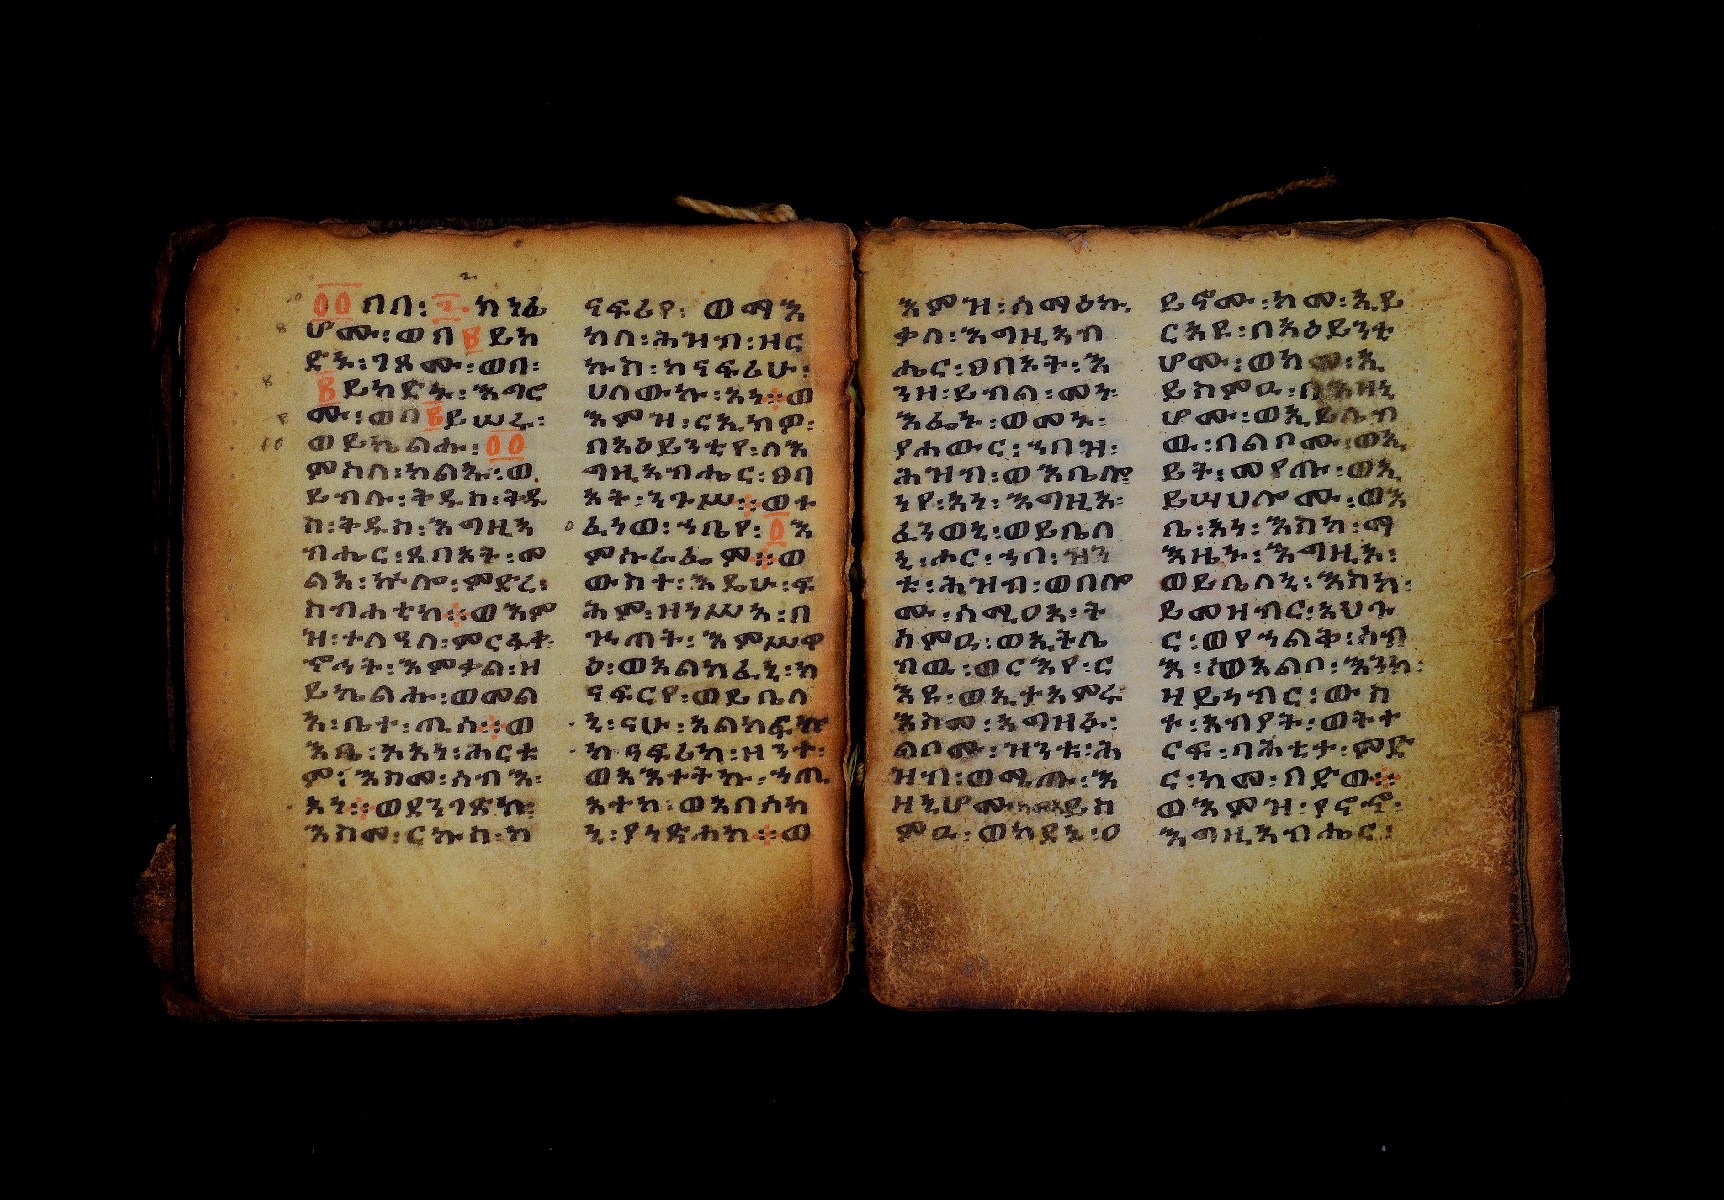 ፩፩ በበ፡ ፮ ክነፊ
ሆሙ፡ወበ ፪ ይከ
ድኑ፡ገጾሙ፡ወበ፡
፪ ይከድኑ፡እግሮ
ሙ፡ወበ ፪ ይሠሩ፡
ወይኬልሑ፡ ፩፩
ምስለ፡ካልኡ፡ወ
ይብሉ፡ቅዱስ፡ቅዱ
ስ፡ቅዱስ፡እግዚአ
ብሔር፡ጸባኦት፡መ
ልአ፡ኵሎ፡ምድረ፡
ስብሐቲከ፨ወእም
ዝ፡ተለዓለ፡ምርፋቅተ፡
ኖኅት፡እምቃል፡ዘ
ይኬልሑ፡ወመል
አ፡ቤተ፡ጢስ፨ወ
እቤ፡አአነ፡ሕርቱ
ም፡እስመ፡ሰብእ፡
አነ፨ወደንገፅኩ፡
እስመ፡ርኩስ፡ከ
ናፍሪየ፡ወማእ
ከለ፡ሕዝብ፡ዘር
ኩስ፡ከናፍሪሁ፡
ሀለውኩ፡አነ፨ወ
እምዝ፡ርኢክዎ፡
በአዕይንቲየ፡ለእ
ግዚአብሔር፡ፀባ
ኦት፡ንጉሥ፨ወተ
ፈነወ፡ኀቤየ፡ ፩ እ
ምሱራፌም፨ወ
ውስተ፡እዴሁ፡ፍ
ሕም፡ዘነሥአ፡በ
ጕጠት፡እምሥዋ
ዕ፡ወአልከፈኒ፡ከ
ናፍርየ፡ወይቤለ
ኒ፡ናሁ፡አልከፍኩ
ከ፡ናፍሪከ፡ዘንተ፡
ወአእተትኩ፡ኀጢ
አተከ፡ወአበሳከ
ኒ፡ያነጽሐከ፨ወ
እምዝ፡ሰማዕኩ
ቃለ፡እግዚአብ
ሔር፡ፀባኦት፡እ
ንዘ፡ይብል፡መኑ፡
እፌኑ፡ወመኑ፡
የሐውር፡ኀበዝ፡
ሕዝብ፡ወእቤሎ
ነየ፡አነ፡እግዚኦ፡
ፈንወኒ፡ወይቤለ
ኒ፡ሖር፡ኀበ፡ዝን
ቱ፡ሕዝብ፡ወበሎ
ሙ፡ሰሚዐአ፡ት
ሰምዑ፡ወኢትሌ
ብዉ፡ወርእየ፡ር
እዩ፡ወኢተአምሩ፡
እስመ፡አግዘፉ፡
ልቦሙ፡ዝንቱ፡ሕ
ዝብ፡ወሚጡ፡እ
ዘኒሆሙ፡ከመ፡ኢይስ
ምዑ፡ወከደኑ፡ዐ
ይኖሙ፡ከመ፡ኢይ
ርአዩ፡በአዕይንቲ
ሆሙ፡ወከመ፡ኢ
ይስምዑ፡በእዘኒ
ሆሙ፡ወኢይሌብ
ዉ፡በልቦሙ፡ወኢ
ይት፡መየጡ፡ወኢ
ይሣሀሎሙ፡ወእ
ቤ፡አነ፡እስከ፡ማ
እዜኑ፡እግዚኦ፡
ወይቤለኒ፡እስከ፡
ይመዝብር፡አህጉ
ር፡ወየኀልቅ፡ሰብ
እ፡ወአልቦ፡እንከ፡
ዘይነብር፡ውስ
ተ፡አብያት፡ወትተ
ርፍ፡ባሕቲታ፡ምድ
ር፡ከመ፡በድው፨
ወእምዝ፡
እግዚአብሔር፡